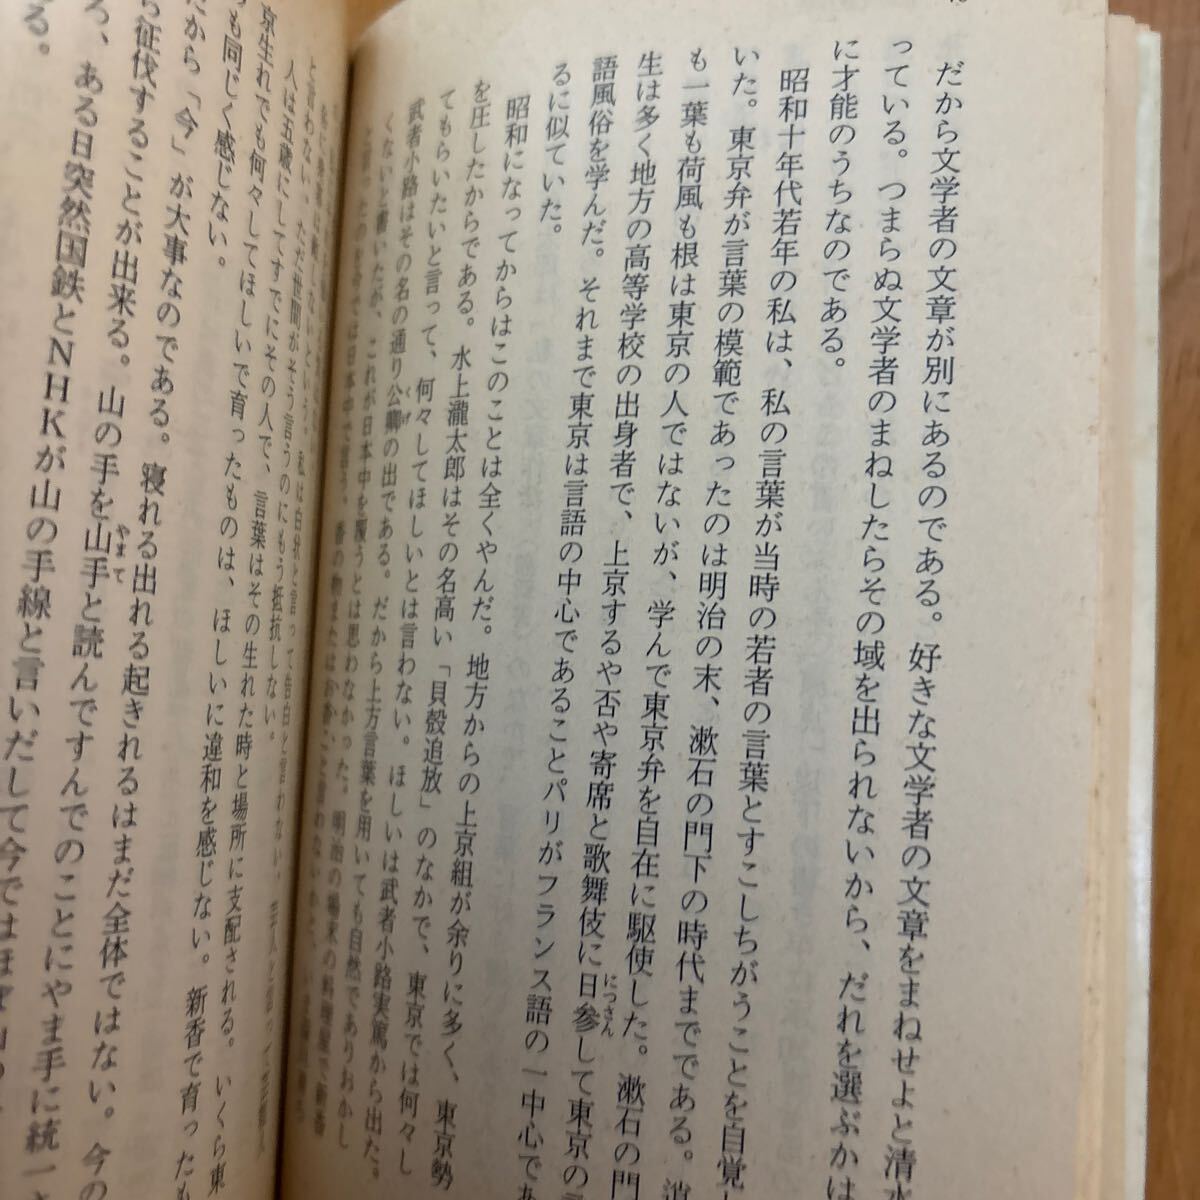 だから文学者の文章が別にあるのである。好きな文学者の文章をまねせよと清水
っている。つまらぬ文学者のまねしたらその域を出られないから、だれを選ぶかは
に才能のうちなのである。
昭和十年代若年の私は、私の言葉が当時の若者の言葉とすこしちがうことを自覚し
いた。東京弁が言葉の模範であったのは明治の末、漱石の門下の時代までである。消
も一葉も荷風も根は東京の人ではないが、学んで東京弁を自在に駆使した。漱石の門
生は多く地方の高等学校の出身者で、上京するや否や寄席と歌舞伎に日参して東京の言
にっさん
語風俗を学んだ。それまで東京は言語の中心であることパリがフランス語の一中心であ
るに似ていた。
昭和になってからはこのことは全くやんだ。地方からの上京組が余りに多く、東京勢
を圧したからである。水上瀧太郎はその名高い「貝殻追放」のなかで、東京では何々し
てもらいたいと言って、何々してほしいとは言わない。ほしいは武者小路実篤から出た。
武者小路はその名の通り公卿の出である。だから上方言葉を用いても自然でありおかし
くげ
くないと書いたが、これが日本中を覆うとは思わなかった。明治の場末の料理屋で新香
と言わない。ただ世間がそう言うのにもう抵抗しない。
人は五歳にしてすでにその人で、言葉はその生れた時と場所に支配される。いくら東
京生れでも何々してほしいで育ったものは、ほしいに違和を感じない。新香で育ったも
も同じく感じない。
だから「今」が大事なのである。寝れる出れる起きれるはまだ全体ではない。今の
ら征伐することが出来る。山の手を山手と読んですんでのことにやま手に統一さ
やまて
ろ、ある日突然国鉄とNHKが山の手線と言いだして今ではほぼ山の
る。